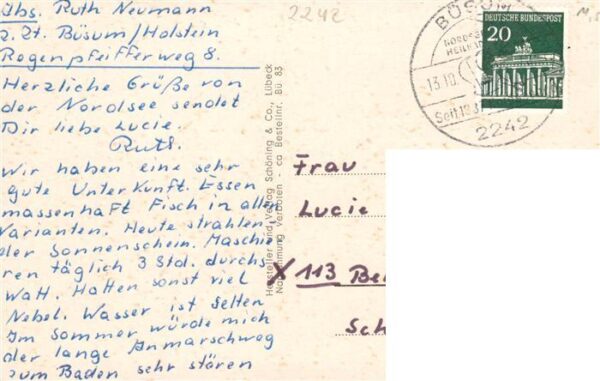 Abs. Ruth Neumann
z. Zt. Büsum/Holstein
Regenpfeifferweg 8.
Herzliche Grüße von
der Nordsee sendet
Dir liebe Lucie.
Ruth.
Wir haben eine sehr
gute Unterkunft. Essen
massenhaft Fisch in allen
Varianten. Heute strahlen-
der Sonnenschein. Maschie-
ren täglich 3 Std. durchs
Watt. Hatten sonst viel
Nebel. Wasser ist selten
Im Sommer würde mich
der lange Anmarschweg
zum Baden sehr stören
Hersteller und Verlag Schöning & Co., Lübeck
Nachahmung verboten - ca Bestellnr. Bü 83
2242
BÜSUM
NORDSEE
HEILB
13.10.
Seit 183
2242
DEUTSCHE BUNDESPOST
20
Frau
Lucie
X 113 Be
Sch